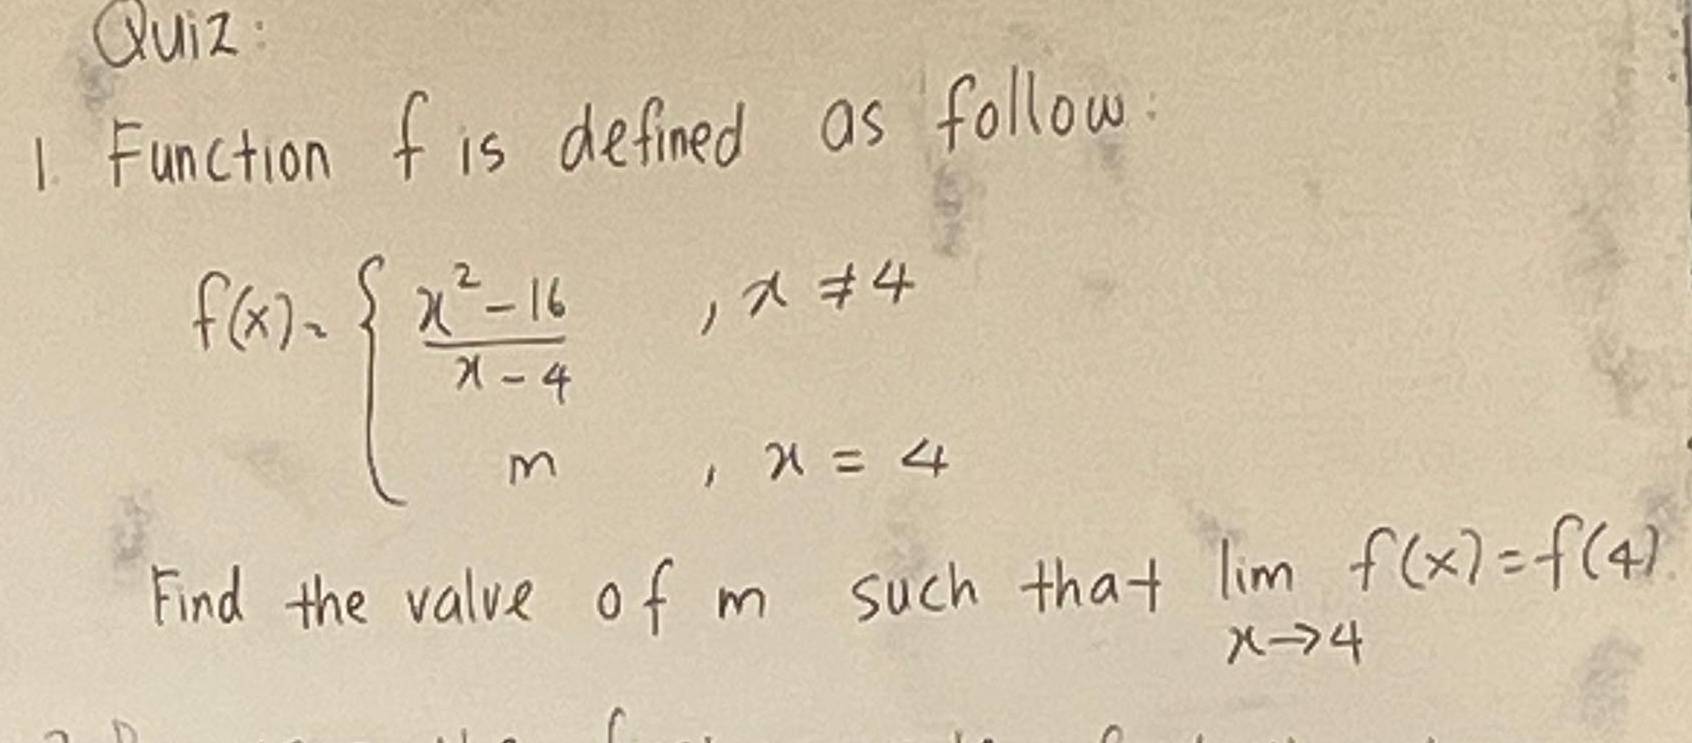 Quiz:
1. Function f is defined as follow:
f(x) = { x² - 16 / x - 4 , x ≠ 4
m , x = 4
Find the value of m such that lim f(x) = f(4).
x→4